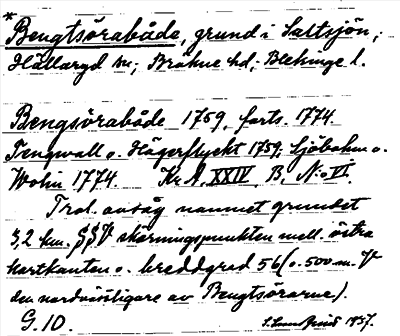 * Bengtsörabåde, grund i Saltsjön,
Hällaryd sn; Bräkne hd; Blekinge l.
Bengsöråbåde 1759, forts. 1774.
Tengwall o. Hägerflyckt 1759, Sjöbohm o.
Wohn 1774. Kr. A. XXIV, B, N:o VI.
Trol. avsåg namnet grundet
3,2 km. SSV skärningspunkten mell. östra
kartkanten o. breddgrad 56 (o. 500 m. V
den nordvästligare av Bengtsörarne).
G. ID. 1937.